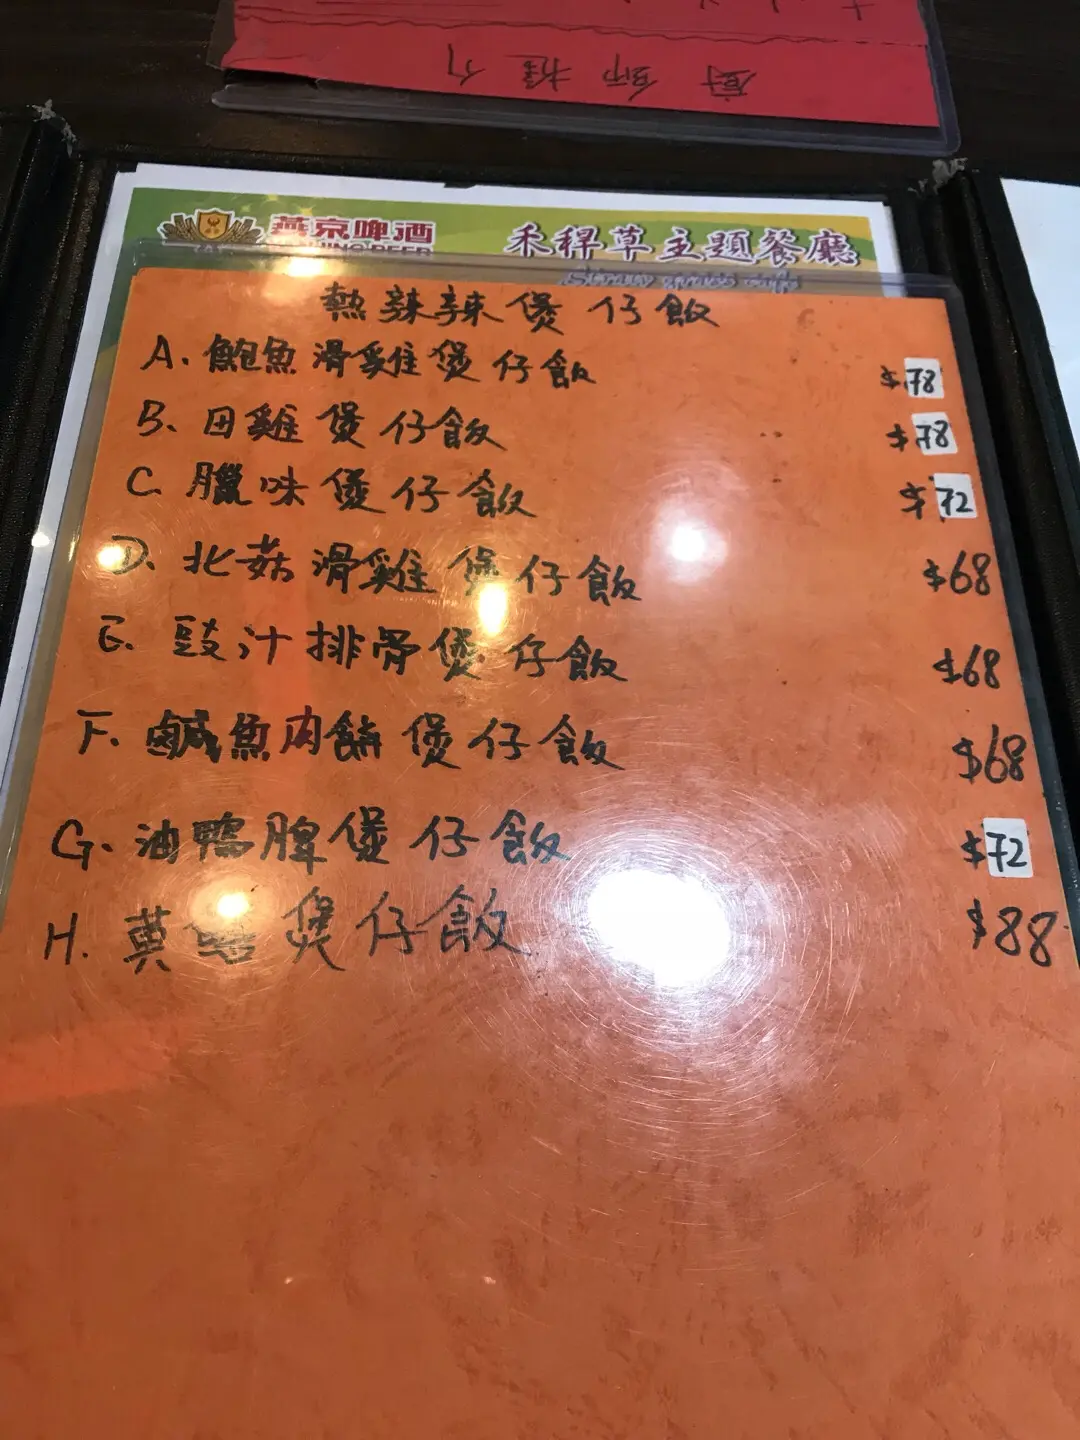 廚師推介
燕京啤酒
禾稈草主題餐廳
熱辣辣煲仔飯
A. 鮑魚滑雞煲仔飯 $78
B. 田雞煲仔飯 $78
C. 臘味煲仔飯 $72
D. 北菇滑雞煲仔飯 $68
E. 豉汁排骨煲仔飯 $68
F. 鹹魚肉餅煲仔飯 $68
G. 油鴨脾煲仔飯 $72
H. 黃鱔煲仔飯 $88